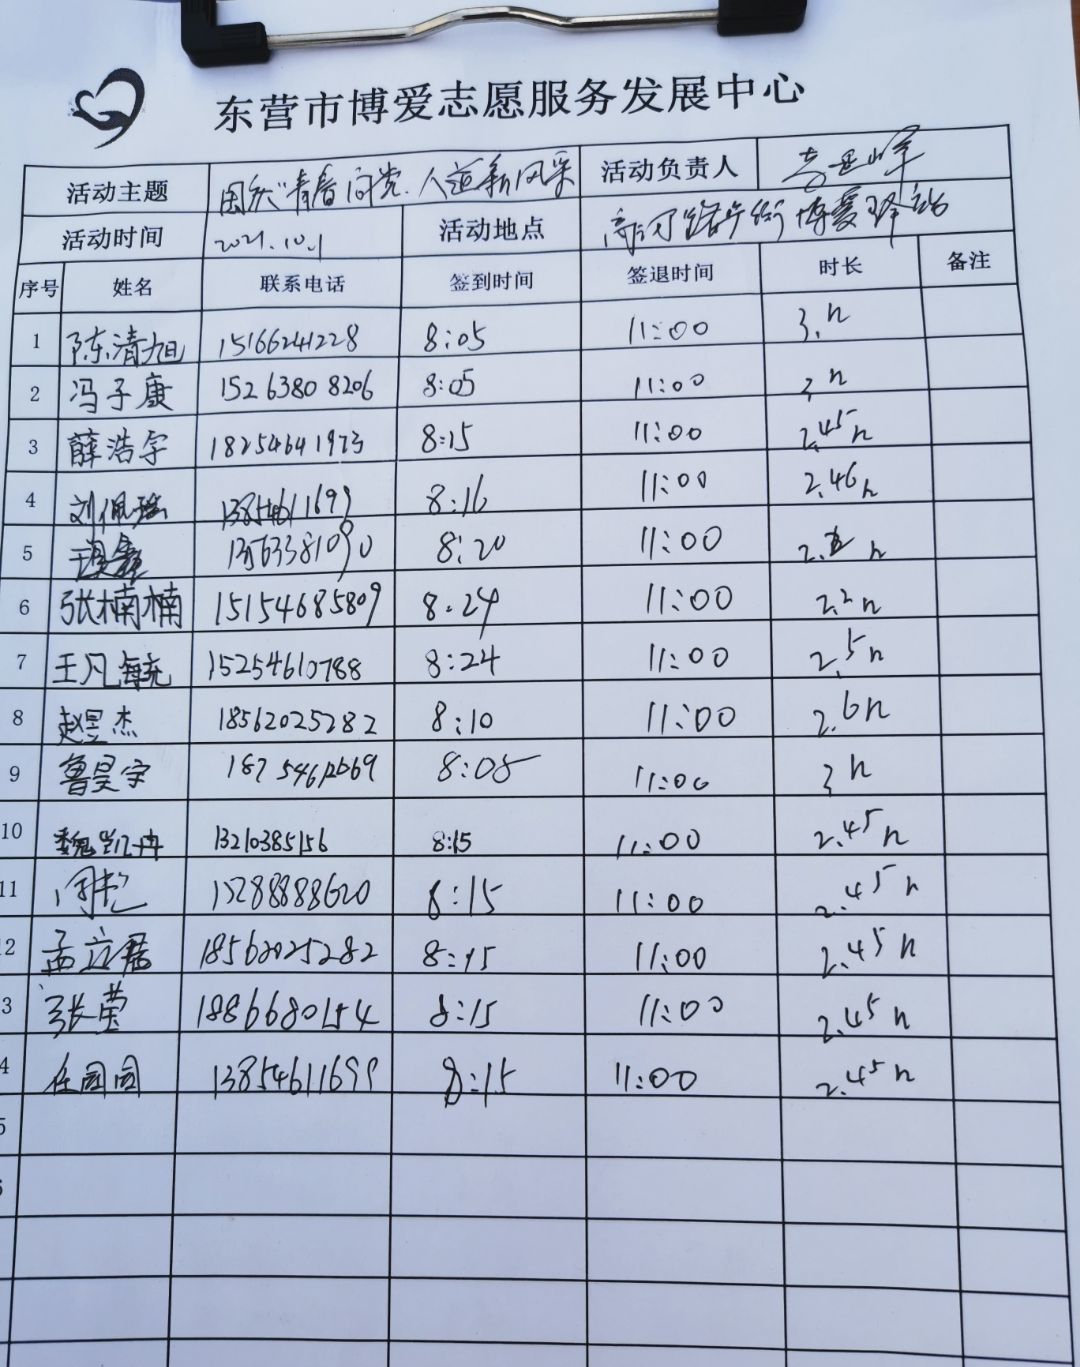 东营市博爱志愿服务发展中心
活动主题 国庆"青春向党.人道新风采 活动负责人
活动时间 2021.10.1 活动地点 博爱驿站
序号 姓名 联系电话 签到时间 签退时间 时长 备注
1 陈清旭 15166241228 8:05 11:00 3.h
2 冯子康 15263808206 8:05 11:00 3h
3 薛浩宇 18254641973 8:15 11:00 2.45h
4 刘佩瑶 13854611699 8:16 11:00 2.46h
5 8:20 11:00
6 张楠楠 15154685809 8:24 11:00 2.2h
7 王凡毓 15254610788 8:24 11:00 2.5h
8 赵昱杰 18562025282 8:10 11:00 2.6h
9 鲁昊宇 8:05 11:00 3h
10 魏凯冉 13210385156 8:15 11:00 2.45h
11 15288888620 8:15 11:00 2.45h
12 孟立君 18562025282 8:15 11:00 2.45h
3 张莹 1886680154 8:15 11:00 2.45h
4 任园园 13854611699 8:15 11:00 2.45h
5